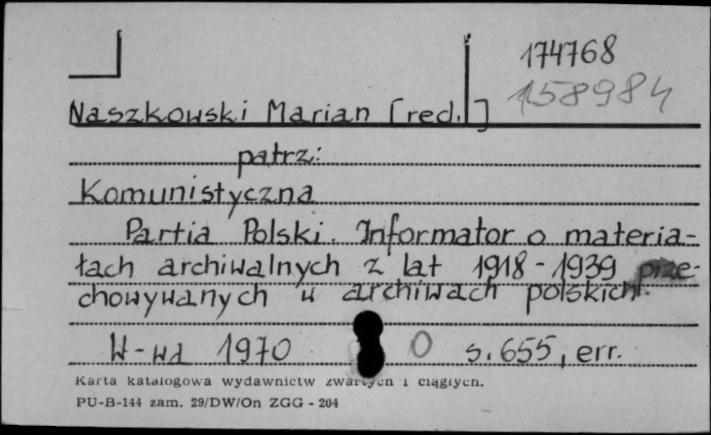 174768
158984
Naszkowski Marian [red.]
patrz:
Komunistyczna
Partia Polski. Informator o materia-
łach archiwalnych z lat 1918-1939 prze-
chowywanych w archiwach polskich.
W-wa 1970 0 s. 655, err.
Karta katalogowa wydawnictw zwartych i ciągłych.
PU-B-144 zam. 29/DW/On ZGG - 204